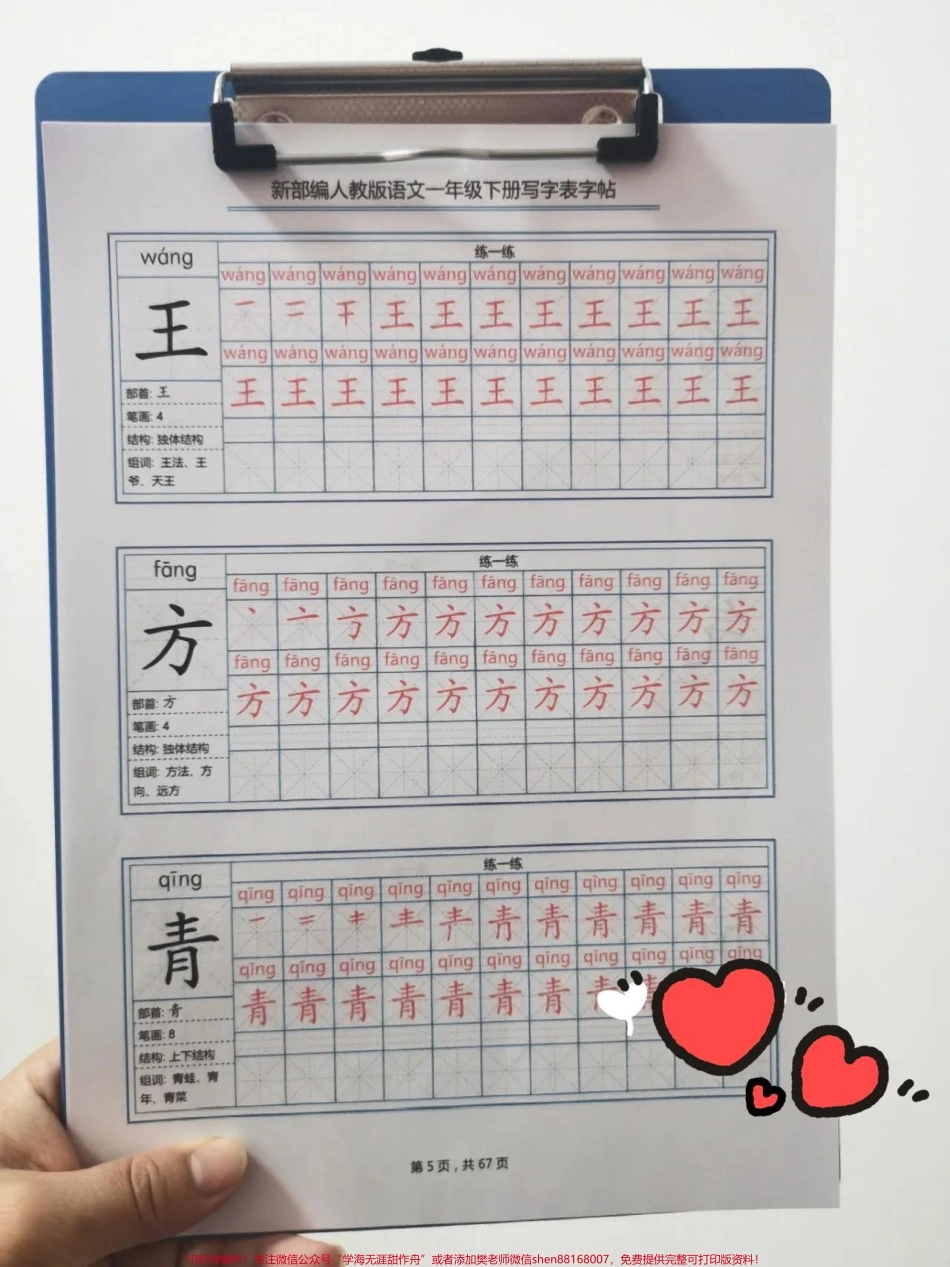 新部编人教版语文一年级下册写字表字帖
wáng
练一练
wáng wáng wáng wáng wáng wáng wáng wáng wáng wáng wáng
王
一 二 干 王 王 王 王 王 王 王 王
wáng wáng wáng wáng wáng wáng wáng wáng wáng wáng wáng
王 王 王 王 王 王 王 王 王 王 王
部首: 王
笔画: 4
结构: 独体结构
组词: 王法、王
爷、天王
fāng
练一练
fāng fāng fāng fāng fāng fāng fāng fāng fāng fāng fāng
方
丶 亠 方 方 方 方 方 方 方 方
fāng fāng fāng fāng fāng fāng fāng fāng fāng fāng fāng
方 方 方 方 方 方 方 方 方 方 方
部首: 方
笔画: 4
结构: 独体结构
组词: 方法、方
向、远方
qīng
练一练
qīng qīng qīng qīng qīng qīng qīng qīng qīng qīng qīng
青
一 二 龶 青 青 青 青 青
qīng qīng qīng qīng qīng qīng qīng qīng qīng qīng qīng
青 青 青 青 青 青 青
部首: 青
笔画: 8
结构: 上下结构
组词: 青蛙、青
年、青菜
第 5 页 , 共 67 页
关注微信公众号“学海无涯甜作舟”或者添加樊老师微信shen88168007，免费提供完整可打印版资料！